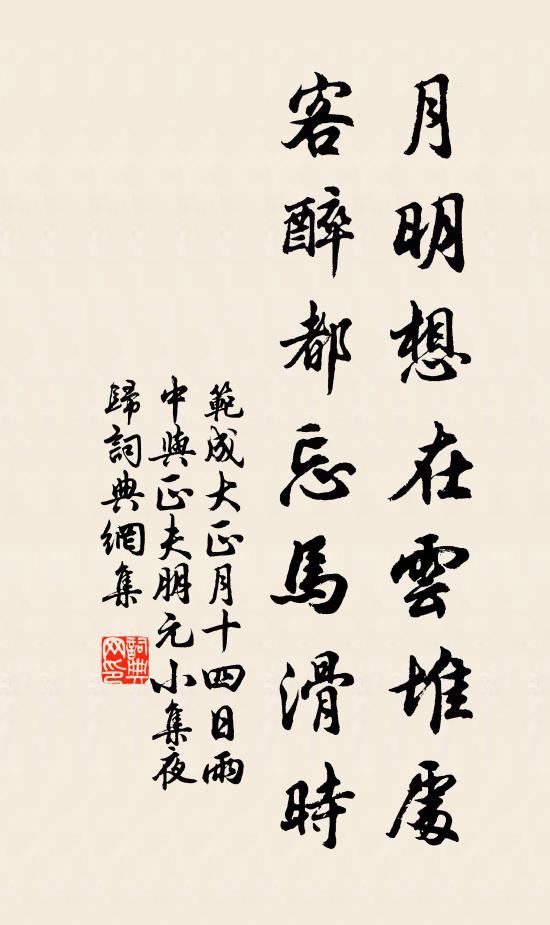 月明想在雲堆處
客醉都忘馬滑時
範成大正月十四日雨
中與正夫朋元小集夜
歸詞典網集
詞典
网印